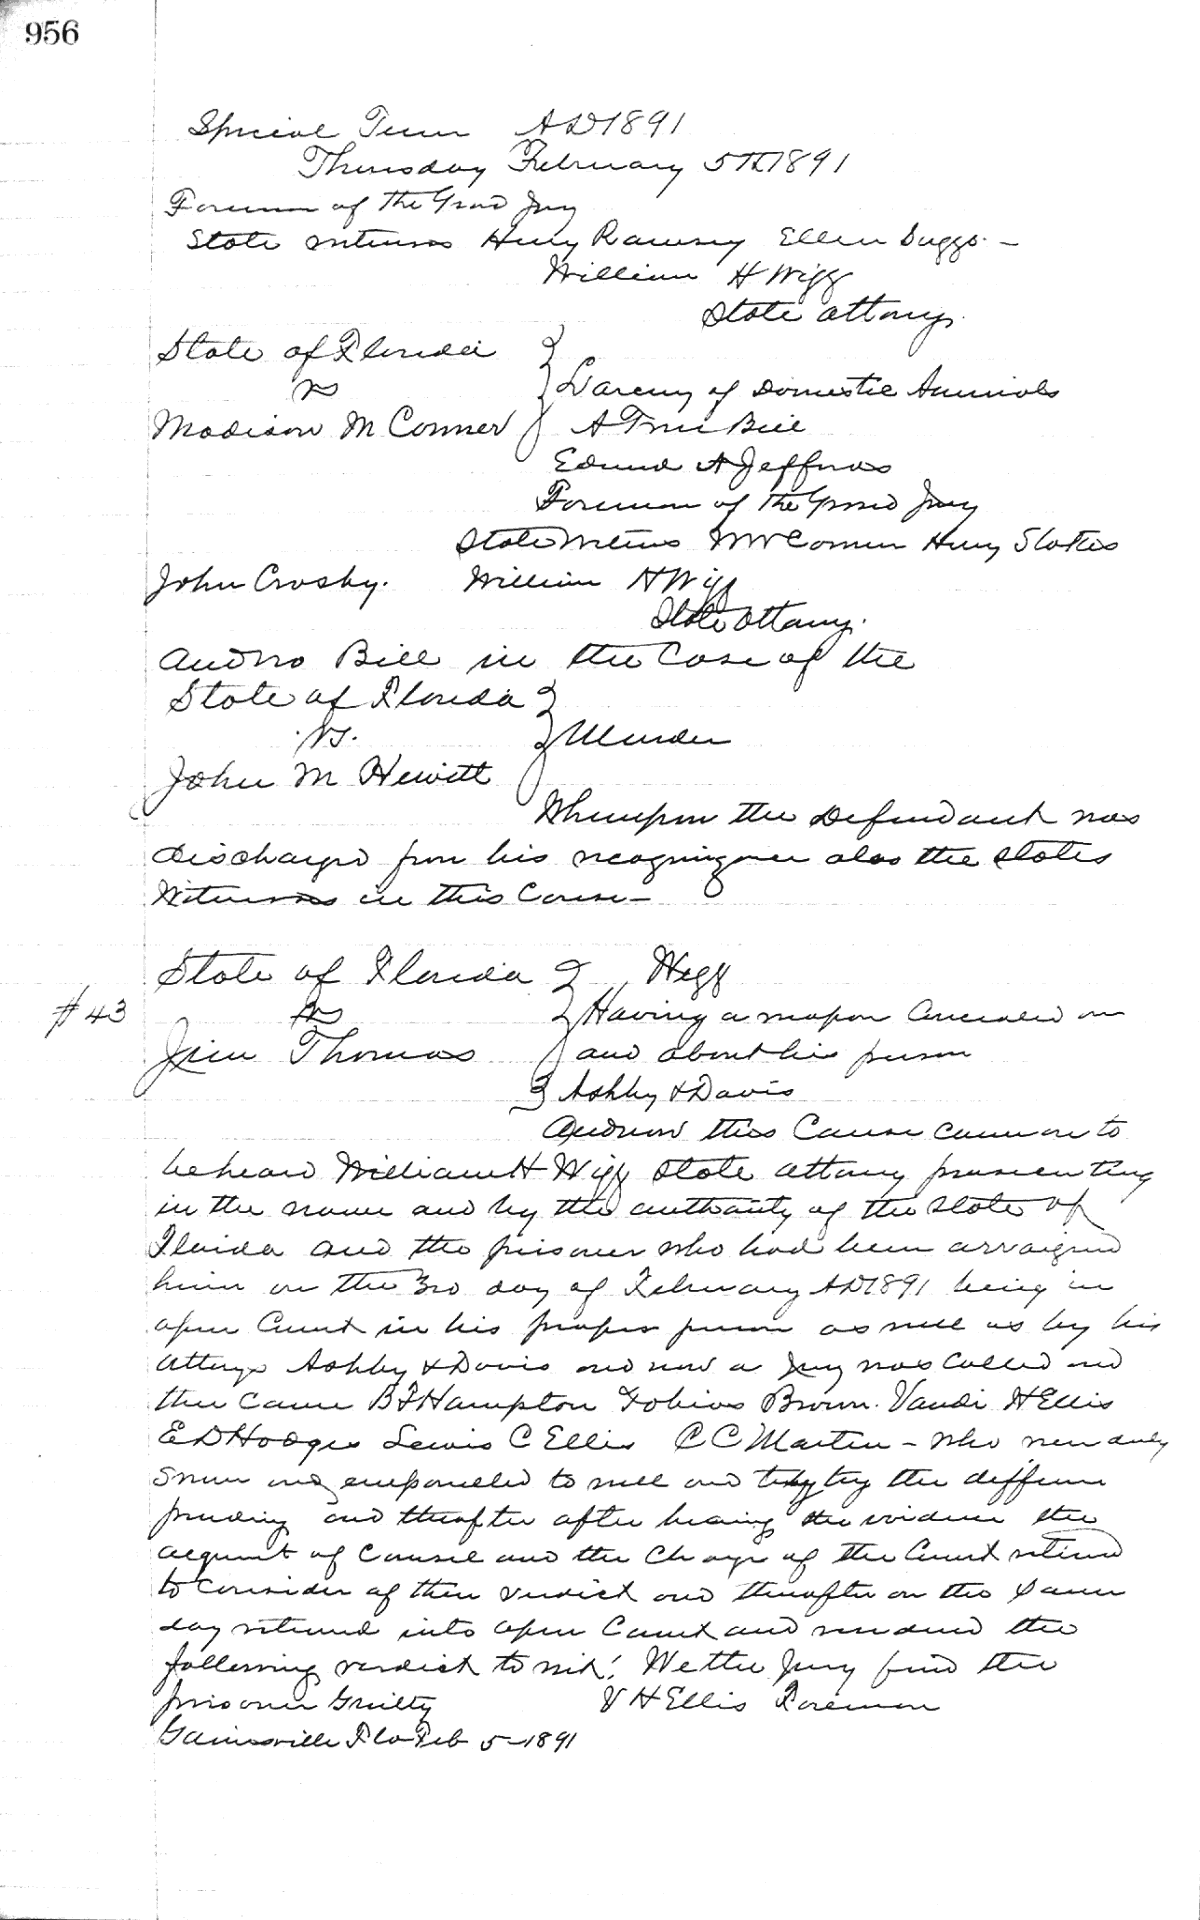 956
Special Term AD 1891
Thursday February 5th 1891
Foreman of the Grand Jury
State witnesses Henry Ramsey Ellen Duggs. -
William H Wigg
State attorney.
State of Florida
vs
Larceny of Domestic Animals
Madison M Conner
A True Bill
Edmund A Jeffords
Foreman of the Grand Jury
State Witness Conner Henry Stokes
John Crosby. William H Wigg
State Attorney.
And no Bill in the Case of the
State of Florida
vs.
Murder
John M Hewitt
Whereupon the Defendant was
discharged from his recognizance also the states
Witnesses in this Cause -
State of Florida Wigg
#43 vs
Having a weapon Concealed on
Jim Thomas and about his person
Ashby & Davis
And now this Cause came on to
be heard William H Wigg State attorney prosecuting
in the name and by the authority of the State of
Florida and the prisoner who had been arraigned
him on the 3rd day of February AD 1891 being in
open Court in his proper person as well as by his
attorneys Ashby & Davis and now a Jury was Called and
then Came B F Hampton Tobias Brown. Vandi H Ellis
E D Hodges Lewis C Ellis C C Martin - who were duly
sworn and empanelled to well and truly try the difference
pending and thereafter after hearing the evidence the
argument of Counsel and the Charge of the Court retired
to Consider of their verdict and thereafter on the same
day returned into open Court and rendered the
following verdict to wit! We the Jury find the
prisoner Guilty V H Ellis Foreman
Gainesville Fla Feb 5-1891